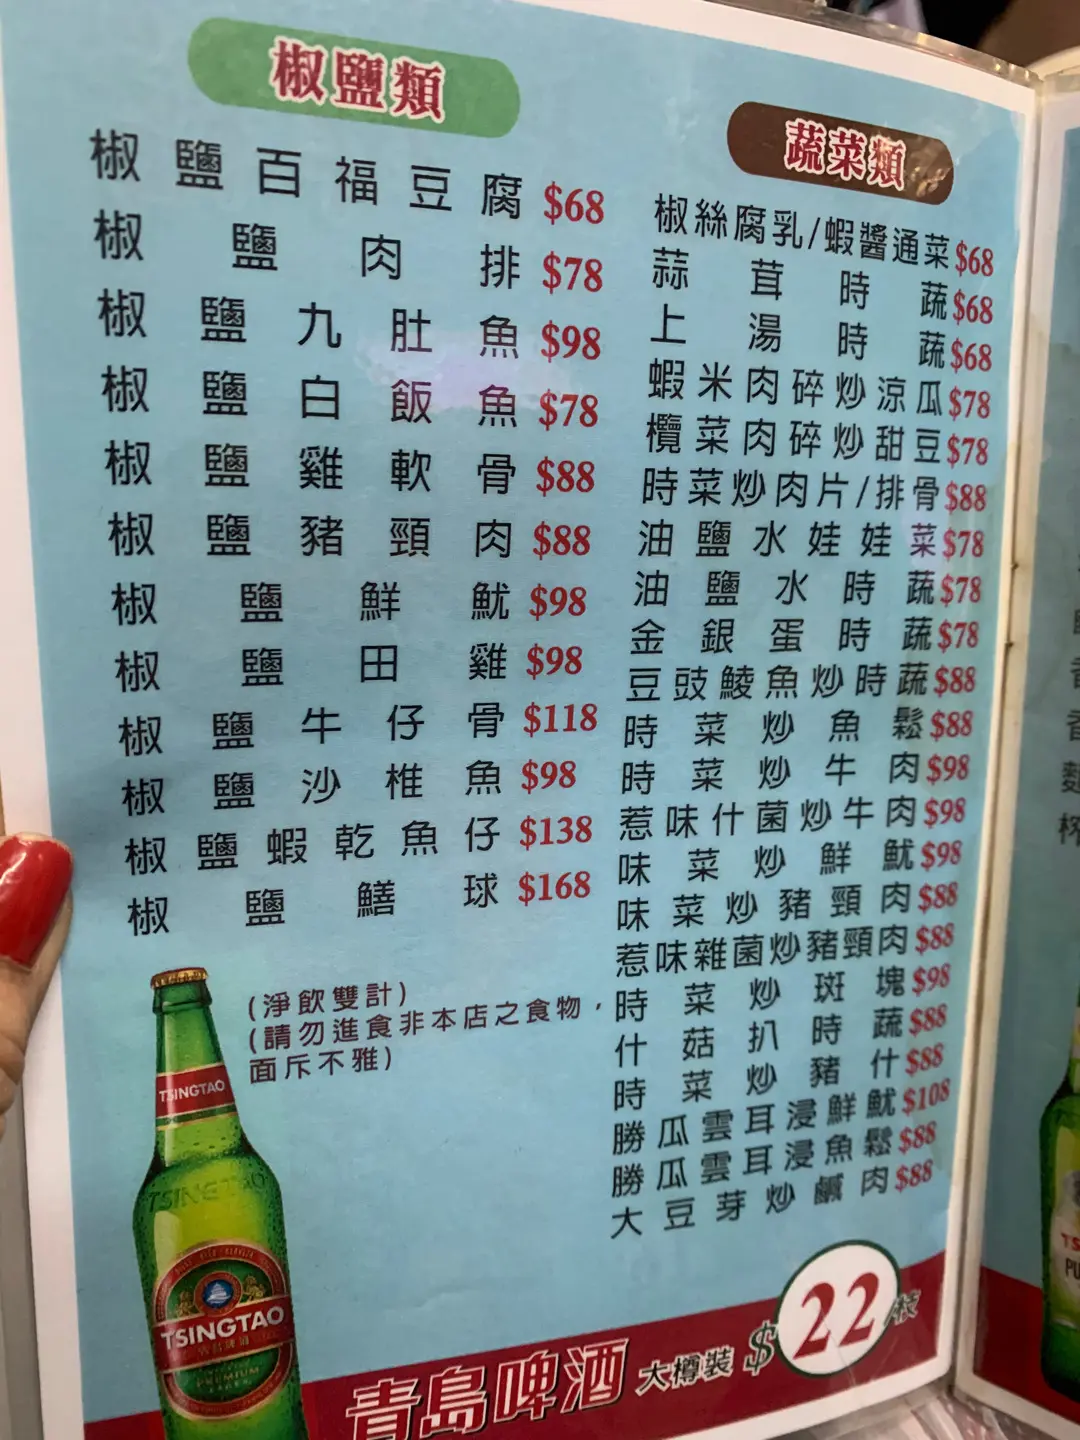 椒鹽類
椒鹽百福豆腐 $68
椒鹽肉排 $78
椒鹽九肚魚 $98
椒鹽白飯魚 $78
椒鹽雞軟骨 $88
椒鹽豬頸肉 $88
椒鹽鮮魷 $98
椒鹽田雞 $98
椒鹽牛仔骨 $118
椒鹽沙椎魚 $98
椒鹽蝦乾魚仔 $138
椒鹽鱔球 $168
(淨飲雙計)
(請勿進食非本店之食物，
面斥不雅)
蔬菜類
椒絲腐乳/蝦醬通菜 $68
蒜茸時蔬 $68
上湯時蔬 $68
蝦米肉碎炒涼瓜 $78
欖菜肉碎炒甜豆 $78
時菜炒肉片/排骨 $88
油鹽水娃娃菜 $78
油鹽水時蔬 $78
金銀蛋時蔬 $78
豆豉鯪魚炒時蔬 $88
時菜炒魚鬆 $88
時菜炒牛肉 $98
惹味什菌炒牛肉 $98
味菜炒鮮魷 $98
味菜炒豬頸肉 $88
惹味雜菌炒豬頸肉 $88
時菜炒斑塊 $98
什菇扒時蔬 $88
時菜炒豬什 $88
勝瓜雲耳浸鮮魷 $108
勝瓜雲耳浸魚鬆 $88
大豆芽炒鹹肉 $88
TSINGTAO
TSINGTAO
TSINGTAO
PREMIUM
青島啤酒 大樽裝 $22/枝